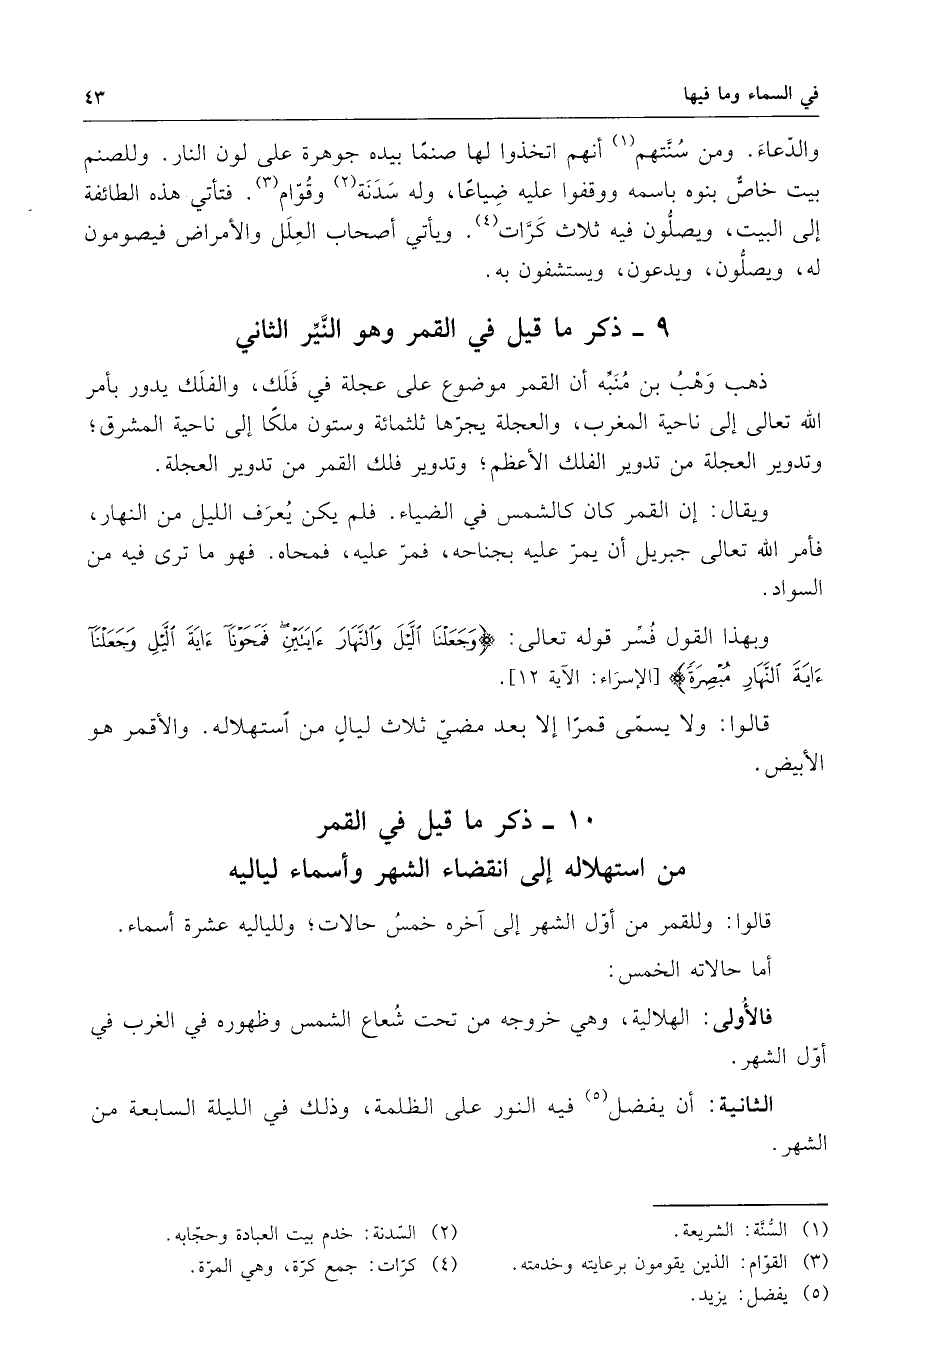 في السماء وما فيها ٤٣
والدّعاءَ. ومن سُنَّتهم(١) أنهم اتخذوا لها صنمًا بيده جوهرة على لون النار. وللصنم
بيت خاصٌّ بنوه باسمه ووقفوا عليه ضِياعًا، وله سَدَنَة(٢) وقُوّام(٣). فتأتي هذه الطائفة
إلى البيت، ويصلُّون فيه ثلاث كَرَّات(٤). ويأتي أصحاب العِلَل والأمراض فيصومون
له، ويصلُّون، ويدعون، ويستشفون به.
٩ ـ ذكر ما قيل في القمر وهو النَّيِّر الثاني
ذهب وَهْبُ بن مُنَبِّه أن القمر موضوع على عجلة في فَلَك، والفلَك يدور بأمر
الله تعالى إلى ناحية المغرب، والعجلة يجرّها ثلثمائة وستون ملَكًا إلى ناحية المشرق؛
وتدوير العجلة من تدوير الفلك الأعظم؛ وتدوير فلك القمر من تدوير العجلة.
ويقال: إن القمر كان كالشمس في الضياء. فلم يكن يُعرَف الليل من النهار،
فأمر الله تعالى جبريل أن يمرّ عليه بجناحه، فمرّ عليه، فمحاه. فهو ما ترى فيه من
السواد.
وبهذا القول فُسِّر قوله تعالى: ﴿وَجَعَلْنَا ٱلَّيْلَ وَٱلنَّهَارَ ءَايَتَيْنِۖ فَمَحَوْنَآ ءَايَةَ ٱلَّيْلِ وَجَعَلْنَآ
ءَايَةَ ٱلنَّهَارِ مُبْصِرَةً﴾ [الإسرَاء: الآية ١٢].
قالوا: ولا يسمّى قمرًا إلا بعد مضيّ ثلاث ليالٍ من ٱستهلاله. والأقمر هو
الأبيض.
١٠ ـ ذكر ما قيل في القمر
من استهلاله إلى انقضاء الشهر وأسماء لياليه
قالوا: وللقمر من أوّل الشهر إلى آخره خمسُ حالات؛ ولِلياليه عشرة أسماء.
أما حالاته الخمس:
فالأُولى: الهلالية، وهي خروجه من تحت شُعاع الشمس وظهوره في الغرب في
أوّل الشهر.
الثانية: أن يفضل(٥) فيه النور على الظلمة، وذلك في الليلة السابعة من
الشهر.
(١) السُّنَّة: الشريعة. (٢) السّدنة: خدم بيت العبادة وحجّابه.
(٣) القوّام: الذين يقومون برعايته وخدمته. (٤) كرّات: جمع كرّة، وهي المرّة.
(٥) يفضل: يزيد.